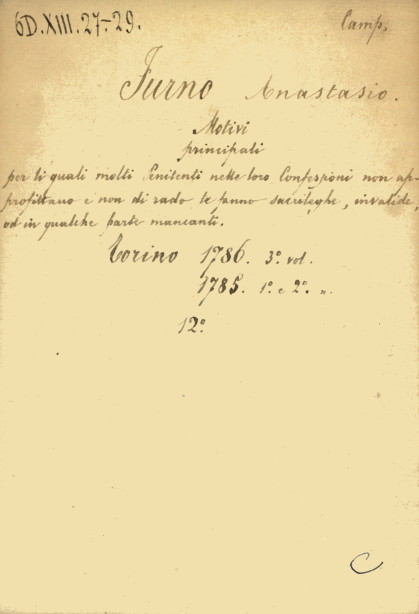 6D.XIII.27-29.
Camp.
Furno Anastasio.
Motivi
principali
per li quali molti Penitenti nelle loro Confessioni non ap-
profittano e non di rado le fanno sacrileghe, invalide,
od in qualche parte mancanti.
Torino 1786. 3º vol.
1785. 1º e 2º. „.
12º
C